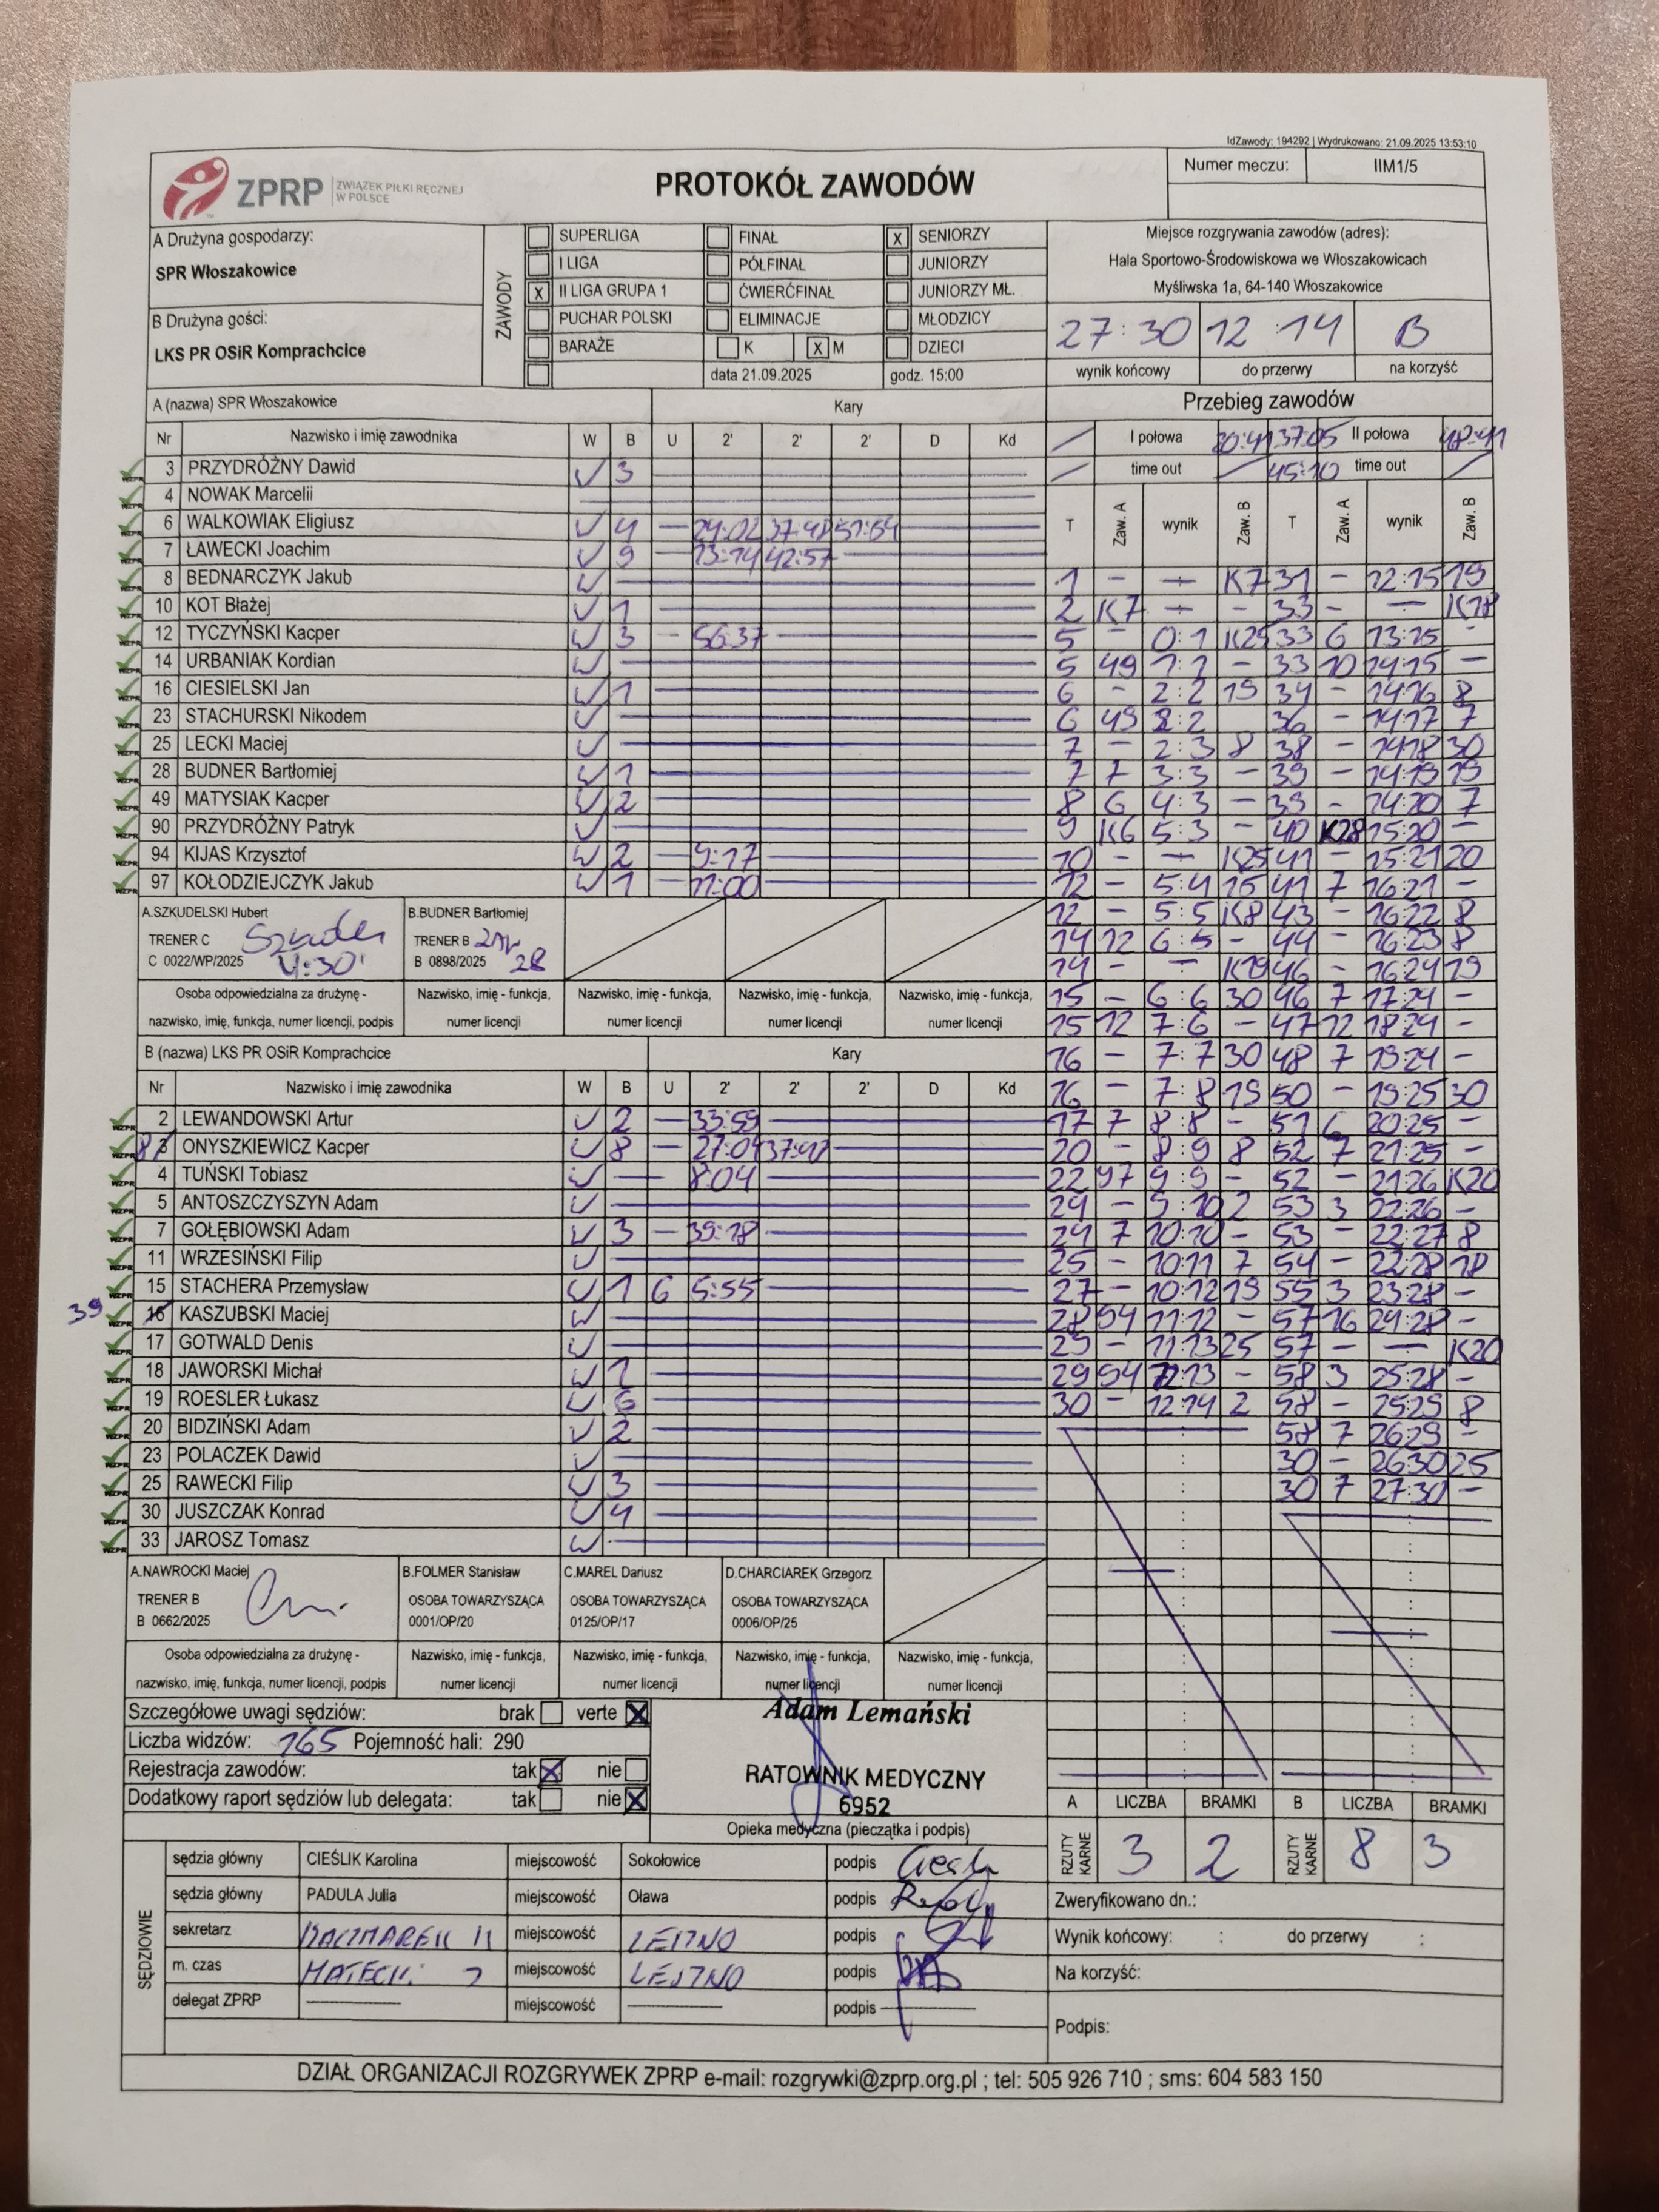 IdZawody: 194292 | Wydrukowano: 21.09.2025 13:53:10
ZPRP ZWIĄZEK PIŁKI RĘCZNEJ W POLSCE
PROTOKÓŁ ZAWODÓW
Numer meczu: IIM1/5
A Drużyna gospodarzy:
SPR Włoszakowice
B Drużyna gości:
LKS PR OSiR Komprachcice
ZAWODY
SUPERLIGA FINAŁ X SENIORZY
I LIGA PÓŁFINAŁ JUNIORZY
X II LIGA GRUPA 1 ĆWIERĆFINAŁ JUNIORZY MŁ.
PUCHAR POLSKI ELIMINACJE MŁODZICY
BARAŻE K X M DZIECI
data 21.09.2025 godz. 15:00
Miejsce rozgrywania zawodów (adres):
Hala Sportowo-Środowiskowa we Włoszakowicach
Myśliwska 1a, 64-140 Włoszakowice
27:30 12:14 B
wynik końcowy do przerwy na korzyść
A (nazwa) SPR Włoszakowice Kary
Nr Nazwisko i imię zawodnika W B U 2' 2' 2' D Kd
3 PRZYDRÓŻNY Dawid 3
4 NOWAK Marcelii
6 WALKOWIAK Eligiusz 4 — 24:02 37:48 51:54
7 ŁAWECKI Joachim 9 — 13:14 42:57
8 BEDNARCZYK Jakub
10 KOT Błażej 1
12 TYCZYŃSKI Kacper 3 — 56:37
14 URBANIAK Kordian
16 CIESIELSKI Jan 1
23 STACHURSKI Nikodem
25 LECKI Maciej
28 BUDNER Bartłomiej 1
49 MATYSIAK Kacper 2
90 PRZYDRÓŻNY Patryk
94 KIJAS Krzysztof 2 — 9:17
97 KOŁODZIEJCZYK Jakub 1 — 11:00
A.SZKUDELSKI Hubert
TRENER C
C 0022/WP/2025
B.BUDNER Bartłomiej
TRENER B
B 0898/2025 28
Osoba odpowiedzialna za drużynę -
nazwisko, imię, funkcja, numer licencji, podpis
Nazwisko, imię - funkcja, Nazwisko, imię - funkcja, Nazwisko, imię - funkcja, Nazwisko, imię - funkcja,
numer licencji numer licencji numer licencji numer licencji
B (nazwa) LKS PR OSiR Komprachcice Kary
Nr Nazwisko i imię zawodnika W B U 2' 2' 2' D Kd
2 LEWANDOWSKI Artur 2 — 33:59
8 ONYSZKIEWICZ Kacper 8 — 27:04 37:47
4 TUŃSKI Tobiasz 8:04
5 ANTOSZCZYSZYN Adam
7 GOŁĘBIOWSKI Adam 3 — 39:18
11 WRZESIŃSKI Filip
15 STACHERA Przemysław 1 6 5:55
39 16 KASZUBSKI Maciej
17 GOTWALD Denis
18 JAWORSKI Michał 1
19 ROESLER Łukasz 6
20 BIDZIŃSKI Adam 2
23 POLACZEK Dawid
25 RAWECKI Filip 3
30 JUSZCZAK Konrad 4
33 JAROSZ Tomasz
A.NAWROCKI Maciej
TRENER B
B 0662/2025
B.FOLMER Stanisław
OSOBA TOWARZYSZĄCA
0001/OP/20
C.MAREL Dariusz
OSOBA TOWARZYSZĄCA
0125/OP/17
D.CHARCIAREK Grzegorz
OSOBA TOWARZYSZĄCA
0006/OP/25
Osoba odpowiedzialna za drużynę -
nazwisko, imię, funkcja, numer licencji, podpis
Nazwisko, imię - funkcja, Nazwisko, imię - funkcja, Nazwisko, imię - funkcja, Nazwisko, imię - funkcja,
numer licencji numer licencji numer licencji numer licencji
Szczegółowe uwagi sędziów: brak verte X
Liczba widzów: 165 Pojemność hali: 290
Rejestracja zawodów: tak X nie
Dodatkowy raport sędziów lub delegata: tak nie X
Adam Lemański
RATOWNIK MEDYCZNY
6952
Opieka medyczna (pieczątka i podpis)
SĘDZIOWIE
sędzia główny CIEŚLIK Karolina miejscowość Sokołowice podpis
sędzia główny PADULA Julia miejscowość Oława podpis
sekretarz miejscowość podpis
m. czas miejscowość podpis
delegat ZPRP miejscowość podpis
Przebieg zawodów
I połowa 20:41 37:05 II połowa 48:41
time out 45:10 time out
T Zaw. A wynik Zaw. B T Zaw. A wynik Zaw. B
1 — — K7 31 — 12:15 19
2 K7 — — 33 — — K18
5 — 0:1 K25 33 6 13:15 —
5 49 1:1 — 33 10 14:15 —
6 — 2:2 19 34 — 14:16 8
6 49 2:2 36 — 14:17 7
7 — 2:3 8 38 — 14:18 30
7 7 3:3 — 39 — 14:19 19
8 6 4:3 — 39 — 14:20 7
9 K6 5:3 — 40 K28 15:20 —
10 — — K25 41 — 15:21 20
12 — 5:4 15 41 7 16:21 —
12 — 5:5 K8 43 — 16:22 8
14 12 6:5 — 44 — 16:23 8
14 — — K19 46 — 16:24 19
15 — 6:6 30 46 7 17:24 —
15 12 7:6 — 47 12 18:24 —
16 — 7:7 30 48 7 19:24 —
16 — 7:8 19 50 — 19:25 30
17 7 8:8 — 51 6 20:25 —
20 — 8:9 8 52 7 21:25 —
22 97 9:9 — 52 — 21:26 K20
24 — 9:10 2 53 3 22:26 —
24 7 10:10 — 53 — 22:27 8
25 — 10:11 7 54 — 22:28 18
27 — 10:12 19 55 3 23:28 —
28 94 11:12 — 57 16 24:28 —
29 — 11:13 25 57 — — K20
29 94 12:13 — 58 3 25:28 —
30 — 12:14 2 58 — 25:29 8
58 7 26:29 —
30 — 26:30 25
30 7 27:30 —
A LICZBA BRAMKI B LICZBA BRAMKI
RZUTY KARNE 3 2 RZUTY KARNE 8 3
Zweryfikowano dn.:
Wynik końcowy: : do przerwy :
Na korzyść:
Podpis:
DZIAŁ ORGANIZACJI ROZGRYWEK ZPRP e-mail: rozgrywki@zprp.org.pl ; tel: 505 926 710 ; sms: 604 583 150